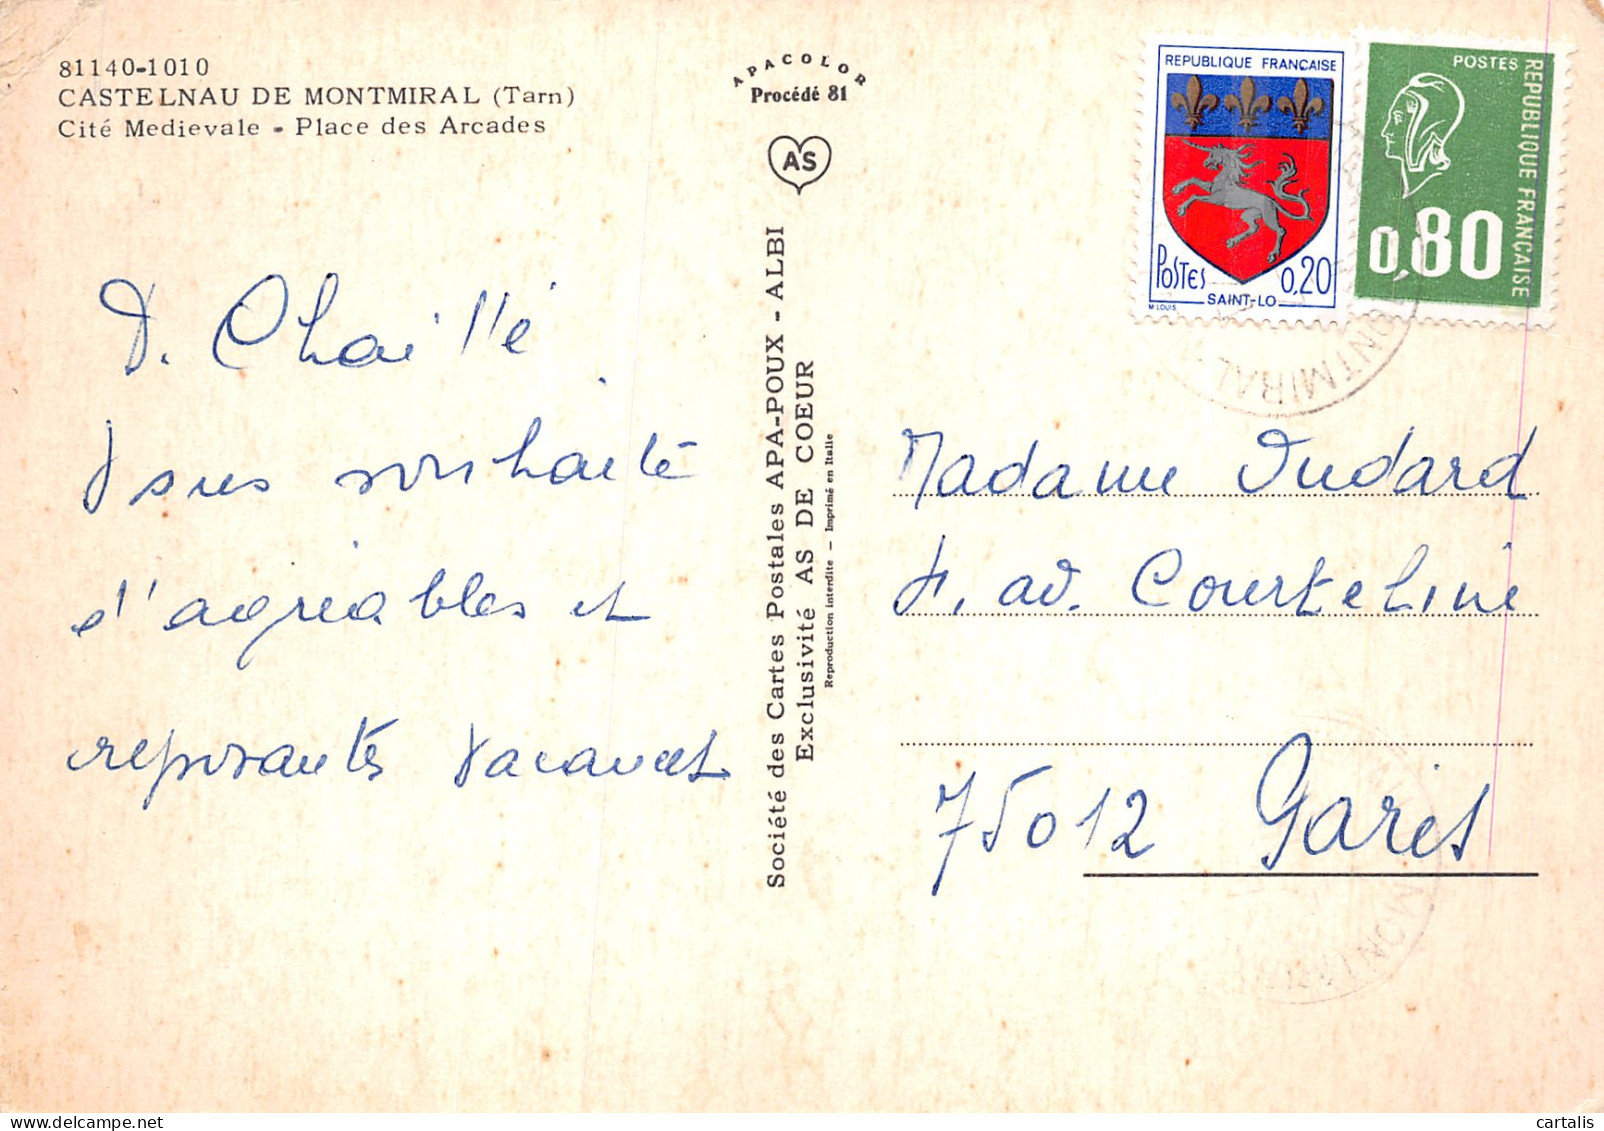 81140-1010
CASTELNAU DE MONTMIRAL (Tarn)
Cité Medievale - Place des Arcades
APACOLOR
Procédé 81
AS
REPUBLIQUE FRANÇAISE
POSTES
0,20
SAINT-LO
M LOUIS
POSTES
REPUBLIQUE FRANÇAISE
0,80
MONTMIRAL
D. Chaillé
souhaite
d'agréables et
reposantes vacances
Société des Cartes Postales APA-POUX - ALBI
Exclusivité AS DE COEUR
Reproduction interdite - Imprimé en Italie
Madame Oudard
av. Courteline
75012 Paris
cartalis